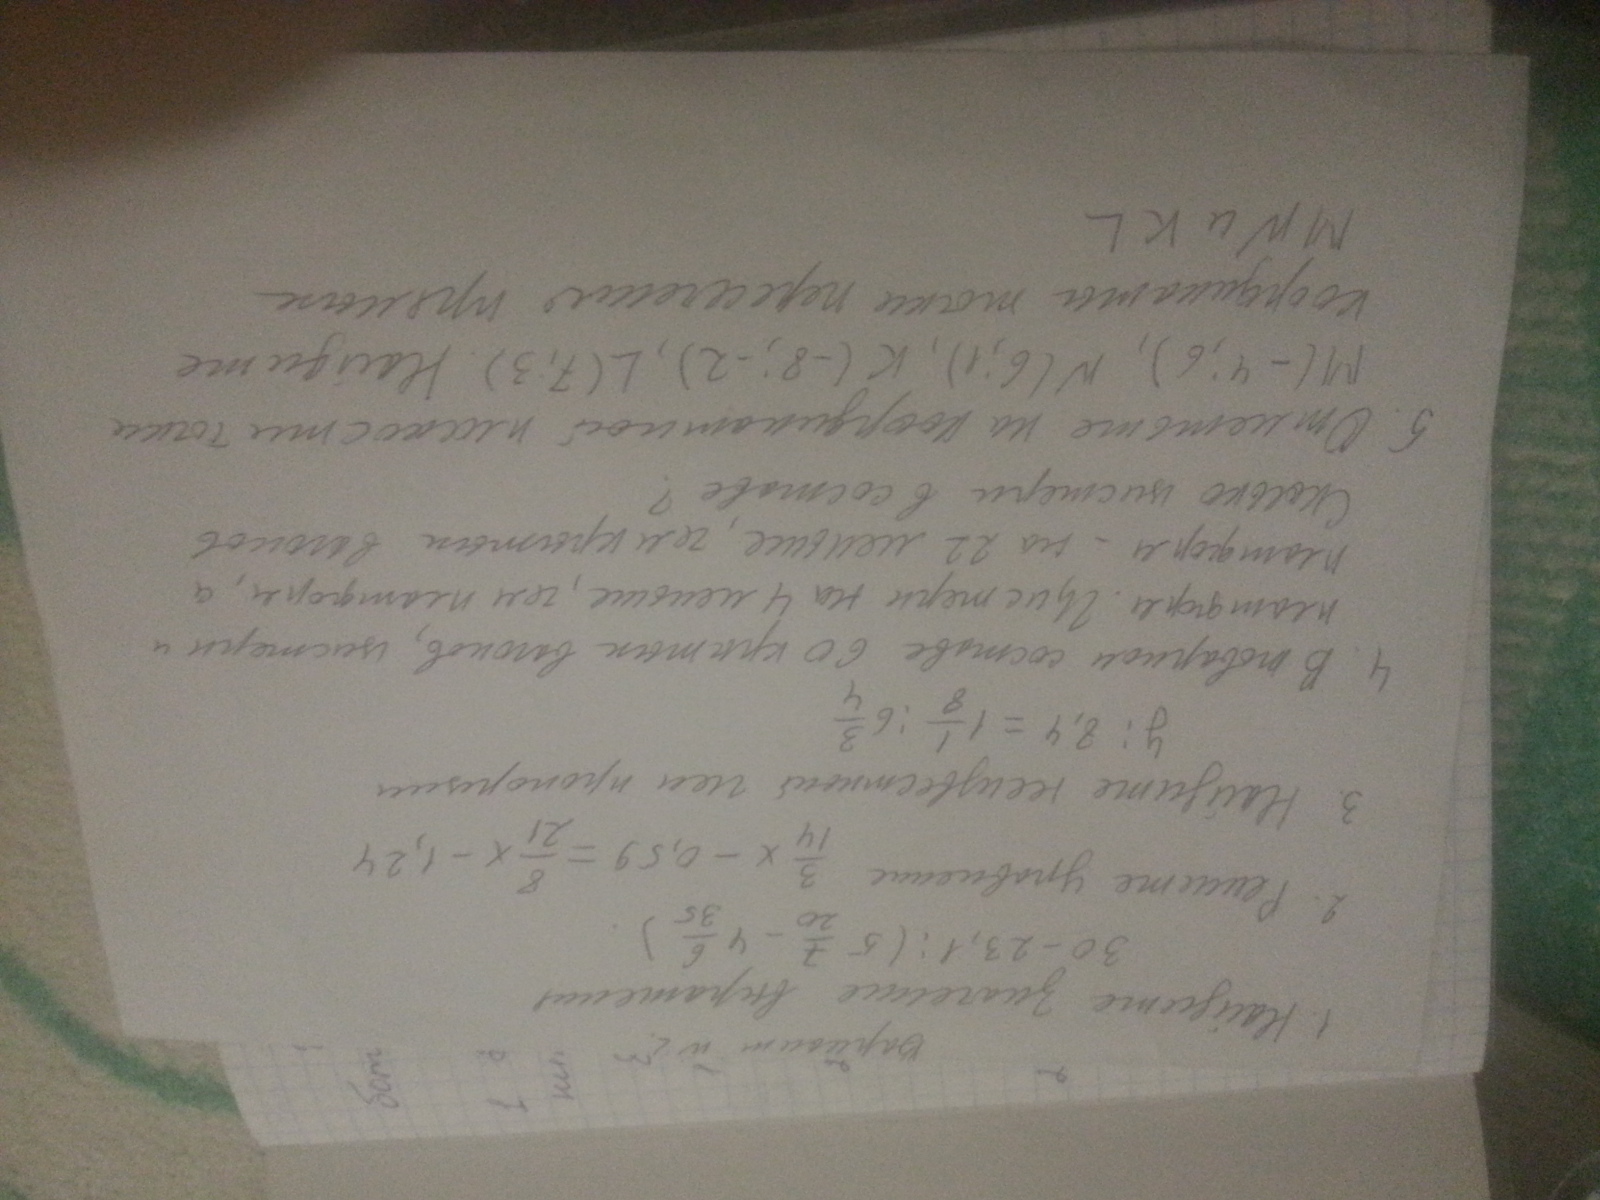 Вариант №2
1. Найдите значение выражения
30-23,1:(5 7/20 - 4 6/35).
2. Решите уравнение 3/14 x - 0,59 = 8/21 x - 1,24
3. Найдите неизвестный член пропорции
y : 8,4 = 1 1/8 : 6 3/4
4. В товарном составе 60 крытых вагонов, цистерн и
платформ. Цистерн на 4 меньше, чем платформ, а
платформ - на 22 меньше, чем крытых вагонов
Сколько цистерн в составе?
5. Отметьте на координатной плоскости точки
M(-4;6), N(6;1), K(-8;-2), L(7;3). Найдите
координаты точки пересечения прямых
MN и KL